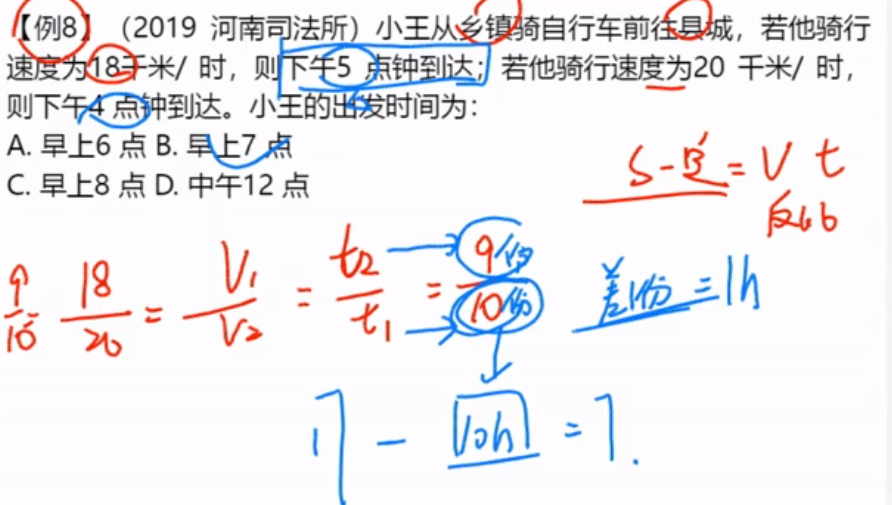 【例8】（2019 河南司法所）小王从乡镇骑自行车前往县城，若他骑行
速度为18千米/ 时，则下午5 点钟到达；若他骑行速度为20 千米/ 时，
则下午4 点钟到达。小王的出发时间为：
A. 早上6 点 B. 早上7 点
C. 早上8 点 D. 中午12 点
S一定 = V t
反比
9/10 18/20 = V1/V2 = t2/t1 = 9份/10份
差1份 = 1h
17 - 10h = 7.